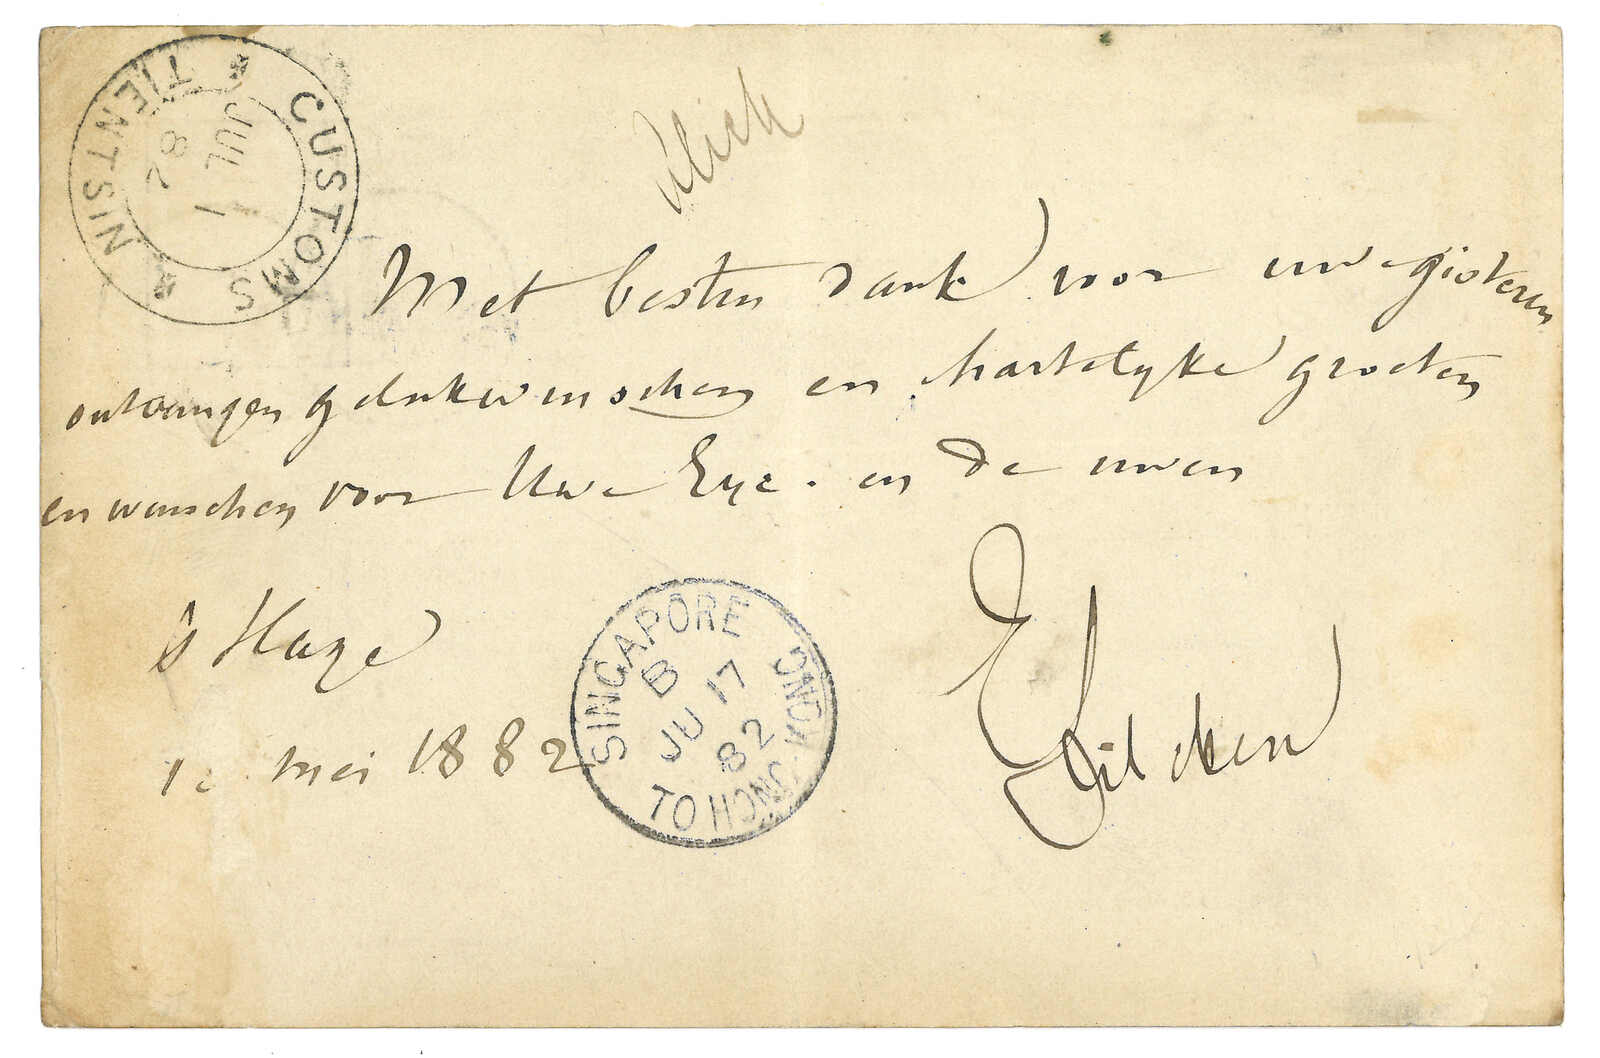 CUSTOMS * TIENTSIN *
JUL
1
82
Met besten dank voor uwe gisteren
ontvangen gelukwenschen en hartelyke groeten
en wenschen voor Uwe Exc. en de uwen
's Hage
mei 1882
SINGAPORE TO HONG-KONG
B
JU 17
82